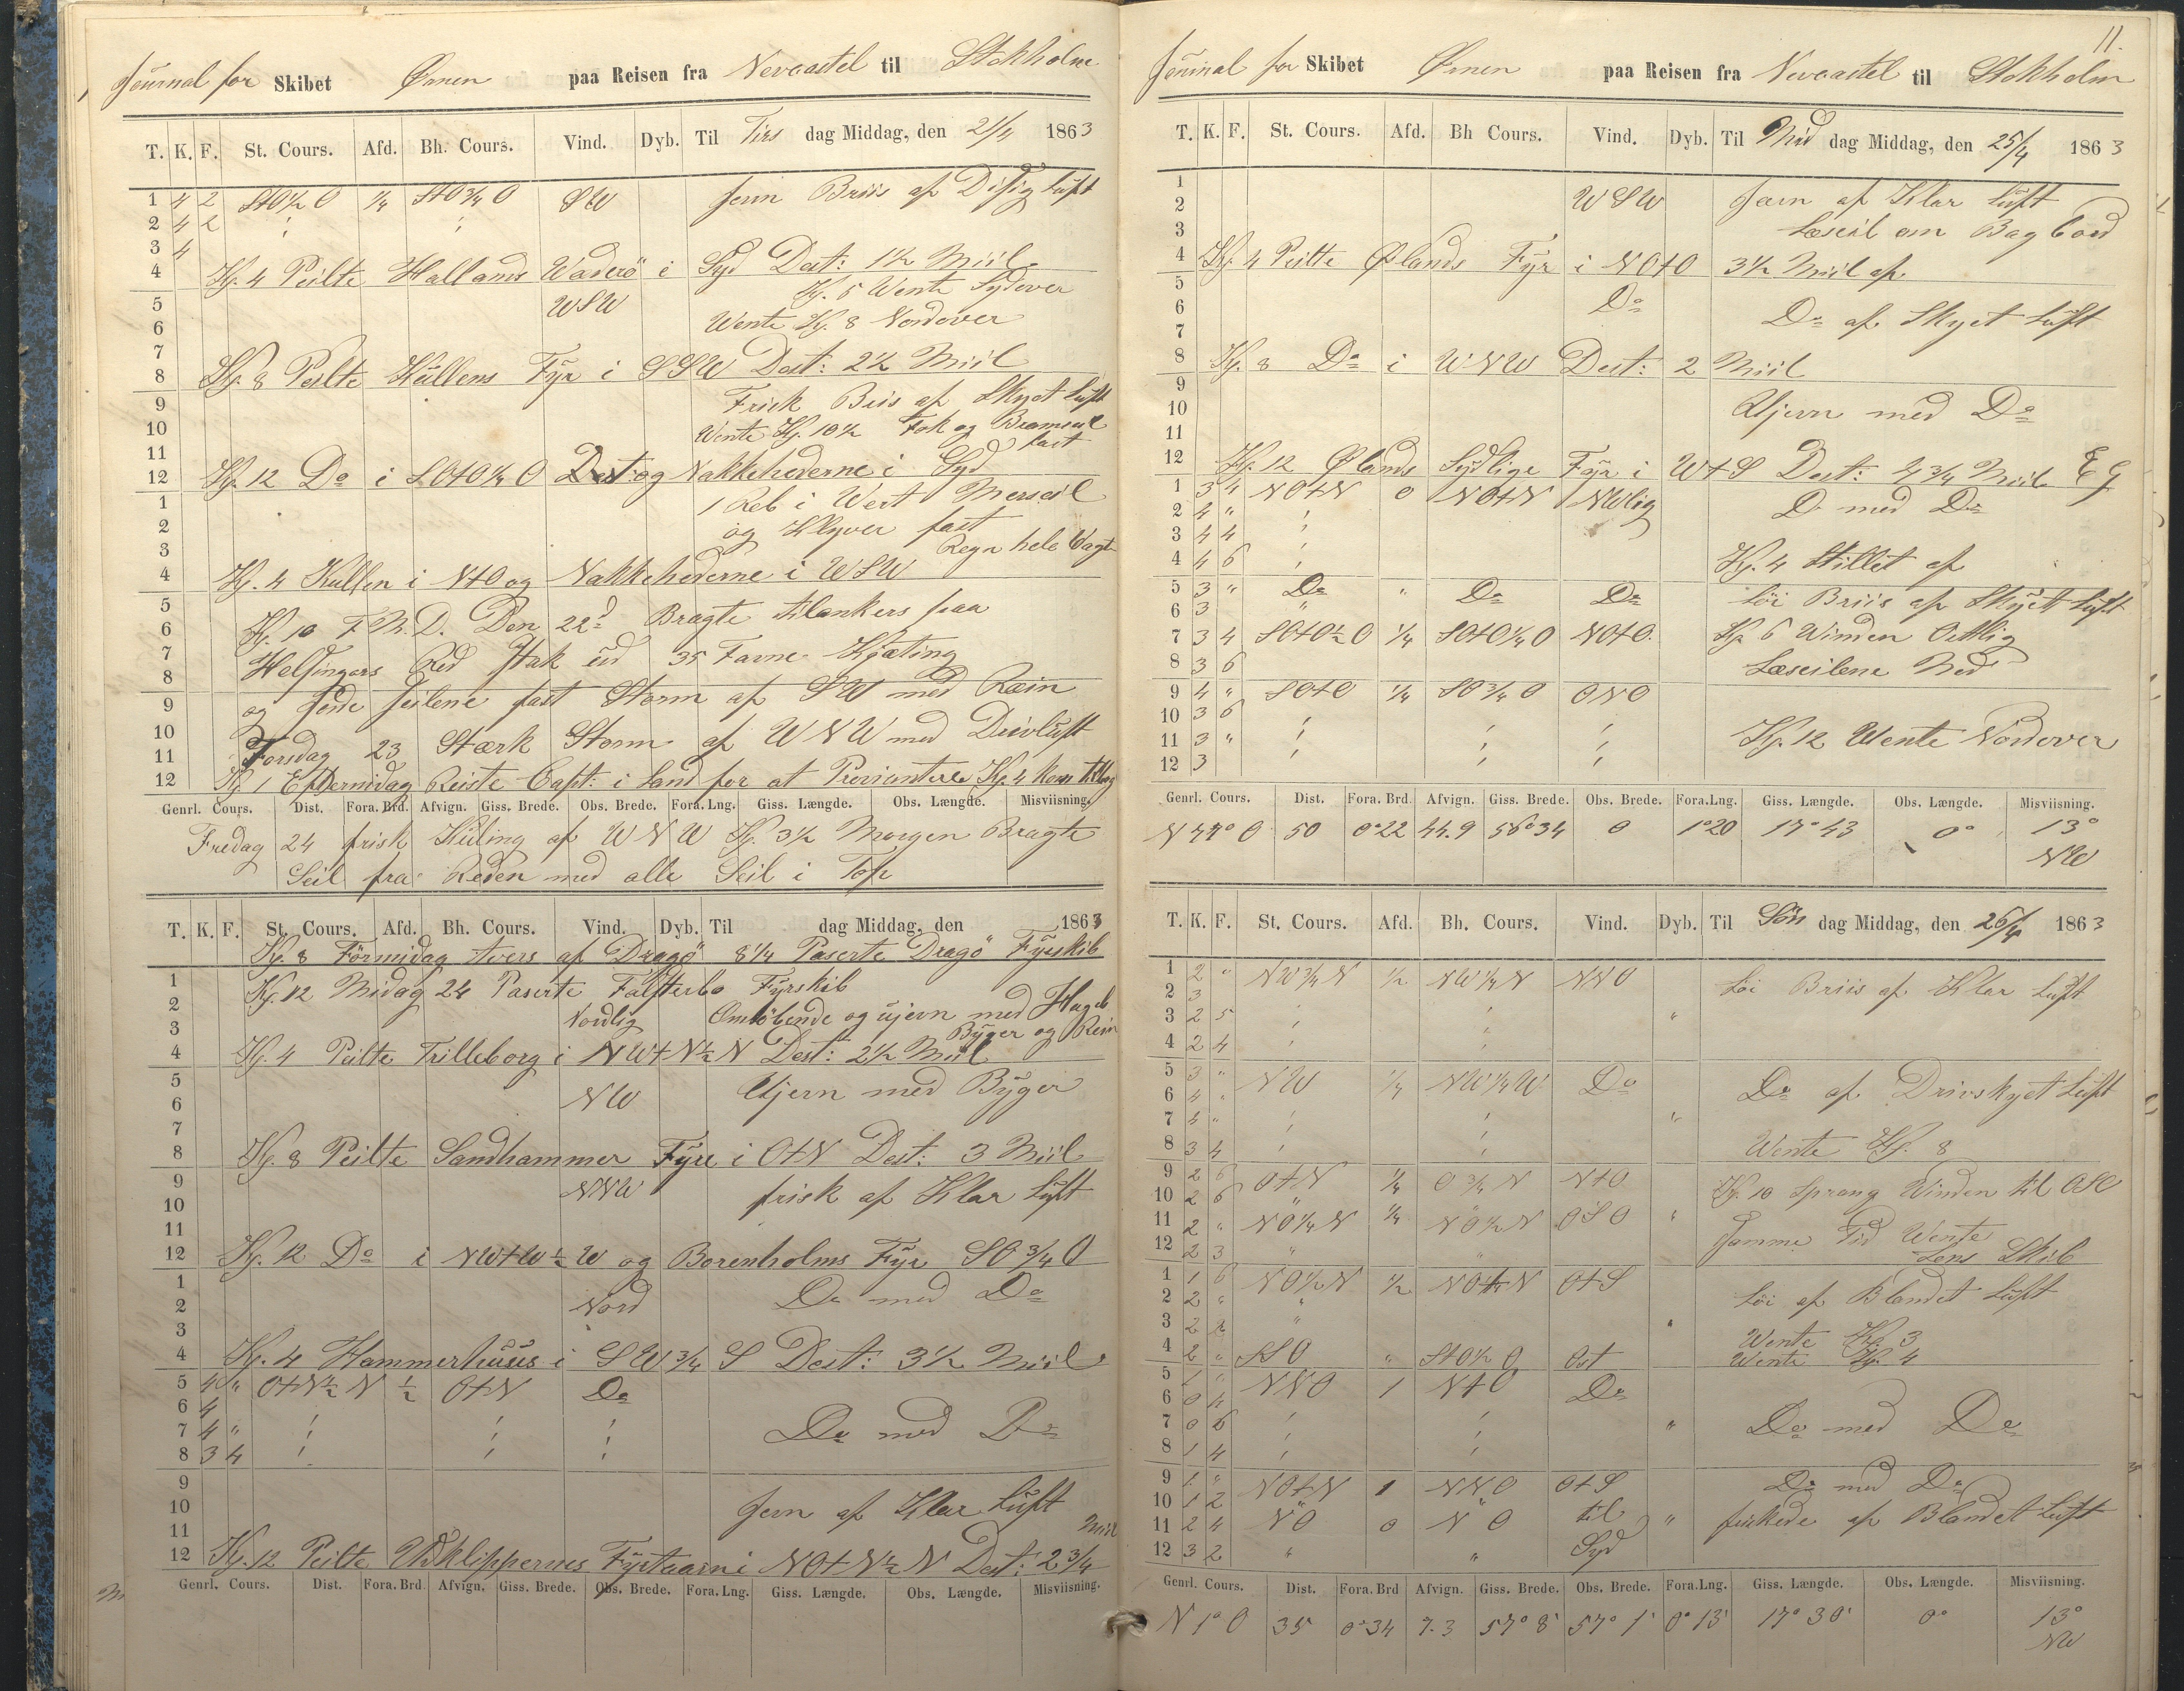 Journal for Skibet Ørnen paa Reisen fra Nevcastel til Stokholm
T. K. F. St. Cours. Afd. Bh. Cours. Vind. Dyb. Til Tirs dag Middag, den 21/4 1863
1 4 2 StO½O ¼ StO¾O SW Jevn Briis af Disig Luft
2 4 2
3 4
4 Kg. 4 Peilte Hallands Waderö i Syd Dest: 1½ Miil
5 WSW Kg. 5 Wente Sydover
6 Wente Kg. 8 Nordover
7
8 Kg. 8 Peilte Kullens Fyr i SSW Dest: 2½ Miil
9 Frisk Briis af Skyet Luft
10 Wente Kg. 10½ Fok og Bramseil fast
11
12 Kg. 12 Do i SOtO¼O Dest: og Nakkehederne i Syd
1 1 Reb i Wert Merseil
2 og Klyver fast
3 Regn hele Vagt
4 Kg. 4 Kullen i NtO og Nakkehederne i WSW
5 Kg. 10 F.M.D. Den 22d Bragte tilankers paa
6
7 Helsingørs Red Stak ud 35 Favne Kjæting
8
9 og gjorde Seilene fast Storm af SW med Rein
10
11 Torsdag 23 Stærk Storm af WNW med Drivluft
12 Kg. 1 Eftermidag Reiste Capt: i Land for at Proviantere Kg. 4 kom
Genrl. Cours. Dist. Fora. Brd. Afvign. Giss. Brede. Obs. Brede. Fora. Lng. Giss. Længde. Obs. Længde. Misviisning.
Fredag 24 frisk Kuling af WNW Kg. 3½ Morgen Bragte
Seil fra Reden med alle Seil i Top
T. K. F. St. Cours. Afd. Bh. Cours. Vind. Dyb. Til dag Middag, den 1863
Kg. 8 Formidag tvers af Dragö 8¼ Paserte Dragö Fyrskib
1 Kg. 12 Midag 24 Paserte Falsterbo Fyrskib
2 Nordlig Omlöbende og ujevn med Hagel
3 Byger og Rein
4 Kg. 4 Peilte Trilleborg i NWtN½N Dest: 2½ Miil
5 NW Ujevn med Byger
6
7
8 Kg. 8 Peilte Sandhammer Fyre i OtN Dest: 3 Miil
9 NNW frisk af Klar Luft
10
11
12 Kg. 12 Do i NWtW½W og Borenholms Fyr SO¾O
1 Nord Do med Do
2
3
4 Kg. 4 Hammerhuus i SW¾S Dest: 3½ Miil
5 4 " OtN½N ½ OtN Do
6 4
7 4 " Do med Do
8 3 4
9
10 Jevn af Klar Luft
11 Miil
12 Kg. 12 Peilte Udklippernes Fyrtaarn i NOtN½N Dest: 2¾
Genrl. Cours. Dist. Fora. Brd. Afvign. Giss. Brede. Obs. Brede. Fora. Lng. Giss. Længde. Obs. Længde. Misviisning.
11.
Journal for Skibet Ørnen paa Reisen fra Nevcastel til Stokholm
T. K. F. St. Cours. Afd. Bh Cours. Vind. Dyb. Til Mid dag Middag, den 25/4 1863
1 WSW Jævn af Klar Luft
2 Læseil om Bagbord
3
4 Kg. 4 Peilte Ølands Fyr i NOtO 3½ Miil af
5 Do
6 Do af Skyet Luft
7
8 Kg. 8 Do i WNW Dest: 2 Miil
9
10 Ujevn med Do
11
12 Kg. 12 Ølands Sydlige Fyr i WtS Dest: 4¾ Miil E G
1 3 4 NOtN 0 NOtN NWlig Do med Do
2 4 "
3 4 4
4 4 6 Kg. 4 Stillet af
5 3 " Do " Do Do Löi Briis af Skyet Luft
6 3 "
7 3 4 SOtO½O ¼ SOtO¼O NOtO Kg. 6 Winden Ostlig
8 3 6 Læseilene Ned
9 4 " SOtO ¼ SO¾O ONO
10 3 6
11 3 " Kg. 12 Wente Nordover
12 3
Genrl. Cours. Dist. Fora. Brd. Afvign. Giss. Brede. Obs. Brede. Fora.Lng. Giss. Længde. Obs. Længde. Misviisning.
N 77° O 50 0°22 44.9 56°34 0 1°20 17°43 0° 13° NW
T. K. F. St. Cours. Afd. Bh. Cours. Vind. Dyb. Til Søn dag Middag, den 26/4 1863
1 2 " NW¾N ½ NW¼N NNO Löi Briis af Klar Luft
2 3
3 2 5 "
4 2 4
5 3 " NW ¼ NW¼W Do Do af Drivskyet Luft
6 4 "
7 4 " "
8 3 4 Wente Kg. 8
9 2 6 OtN ¼ O¾N NtO
10 2 6 " " Kg. 10 Sprang Winden til OSO
11 2 " NO¼N ¼ NO½N OSO " Samme Tid Wente
12 2 3 " " Lens Skib
1 1 6 NO½N ½ OtS Löi af Blandet Luft
2 2 " "
3 2 " " Wente Kg. 3
4 2 " SSO " StO½O Ost Wente Kg. 4
5 1 " NNO 1 NtO Do
6 0
7 0 6 " Do med Do
8 1 4
9 1 " NOtN 1 NNO OtS Do med Do
10 1 2 " " til
11 2 4 NO 0 NO " friskede af Blandet Luft
12 3 2 " " Syd
Genrl. Cours. Dist. Fora. Brd Afvign. Giss. Brede. Obs. Brede. Fora.Lng. Giss. Længde. Obs. Længde. Misviisning.
N 1° O 35 0°34 7.3 57°8' 57°1' 0°13' 17°30' 0° 13° NW